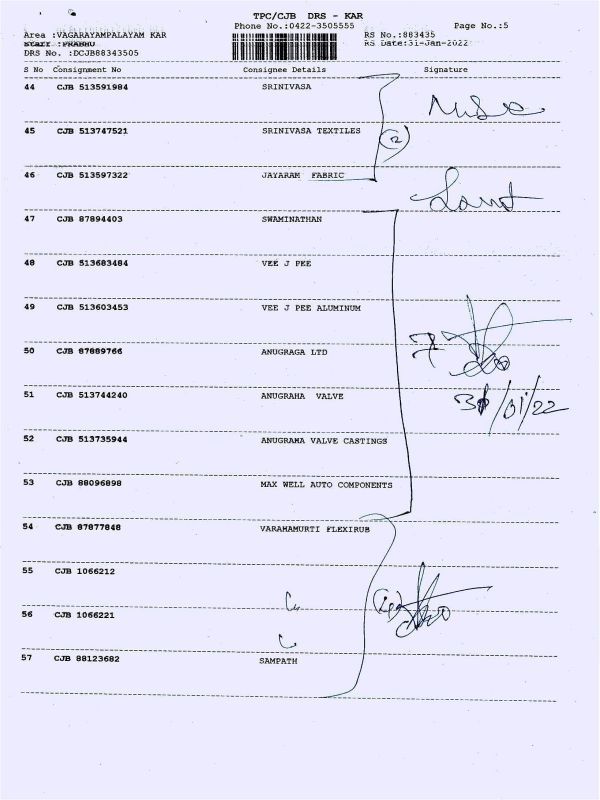 TPC/CJB DRS - KAR
Phone No.:0422-3505555 Page No.:5
Area :VAGARAYAMPALAYAM KAR RS No.:883435
Staff :PRABHU RS Date:31-Jan-2022
DRS No. :DCJB88343505
S No Consignment No Consignee Details Signature
44 CJB 513591984 SRINIVASA
45 CJB 513747521 SRINIVASA TEXTILES (2)
46 CJB 513597322 JAYARAM FABRIC
47 CJB 87894403 SWAMINATHAN
48 CJB 513683484 VEE J PEE
49 CJB 513603453 VEE J PEE ALUMINUM
50 CJB 87889766 ANUGRAGA LTD 7
51 CJB 513744240 ANUGRAHA VALVE 31/01/22
52 CJB 513735944 ANUGRAMA VALVE CASTINGS
53 CJB 88096898 MAX WELL AUTO COMPONENTS
54 CJB 87877848 VARAHAMURTI FLEXIRUB
55 CJB 1066212
56 CJB 1066221
57 CJB 88123682 SAMPATH